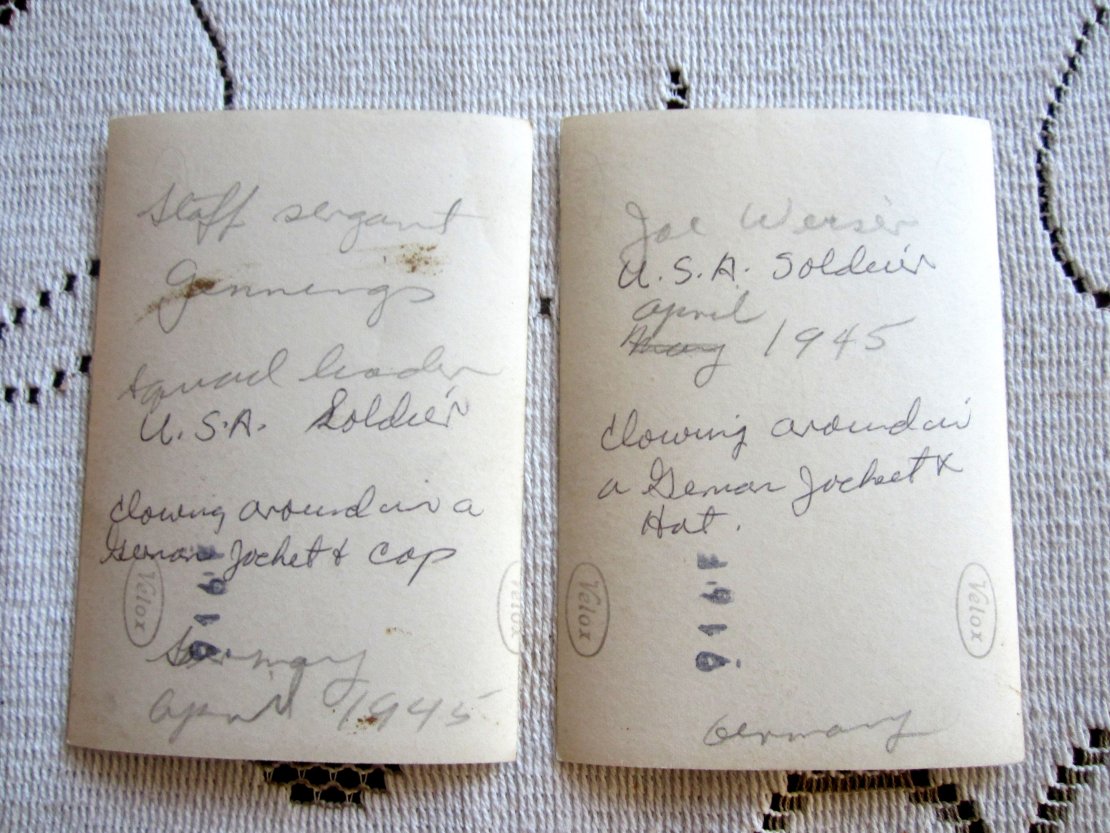 Staff sergant
Gennings
squad leader
U.S.A. Soldier
clowing around in a
German Jacket & cap
Velox
Velox
916F
Germany
April 1945
Joe Werser
U.S.A. Soldier
April
May 1945
clowing around in
a German Jacket &
Hat.
Velox
Velox
916F
Germany